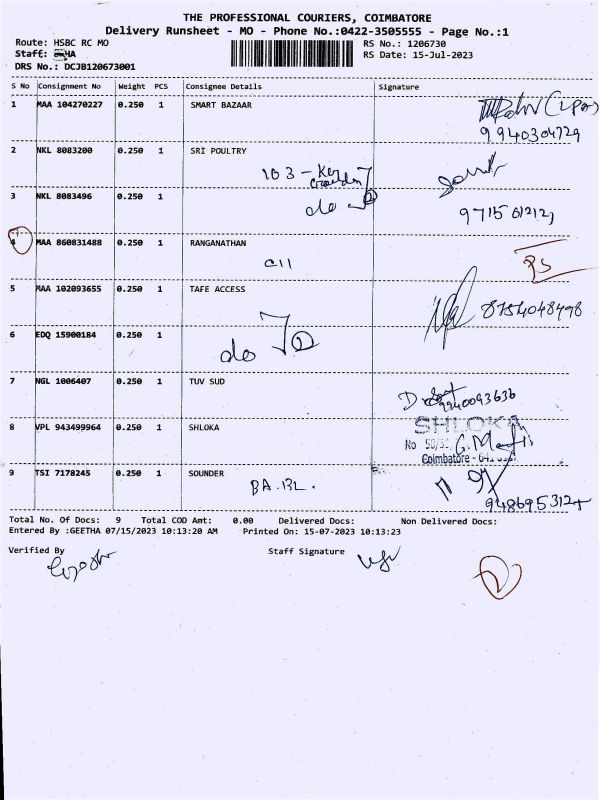 THE PROFESSIONAL COURIERS, COIMBATORE
Delivery Runsheet - MO - Phone No.:0422-3505555 - Page No.:1
Route: HSBC RC MO
RS No.: 1206730
Staff:
RS Date: 15-Jul-2023
DRS No.: DCJB120673001
S No Consignment No Weight PCS Consignee Details Signature
1 MAA 104270227 0.250 1 SMART BAZAAR
9940304729
2 NKL 8083200 0.250 1 SRI POULTRY
103 -
3 NKL 8083496 0.250 1
do
4 MAA 860831488 0.250 1 RANGANATHAN
5 MAA 102093655 0.250 1 TAFE ACCESS
8754048498
6 EDQ 15900184 0.250 1
do 2
7 NGL 1006407 0.250 1 TUV SUD
9940093636
8 VPL 943499964 0.250 1 SHLOKA
SHLOKA
No
Coimbatore -
9 TSI 7178245 0.250 1 SOUNDER
BA.BL.
Total No. Of Docs: 9 Total COD Amt: 0.00 Delivered Docs: Non Delivered Docs:
Entered By :GEETHA 07/15/2023 10:13:20 AM Printed On: 15-07-2023 10:13:23
Verified By Staff Signature